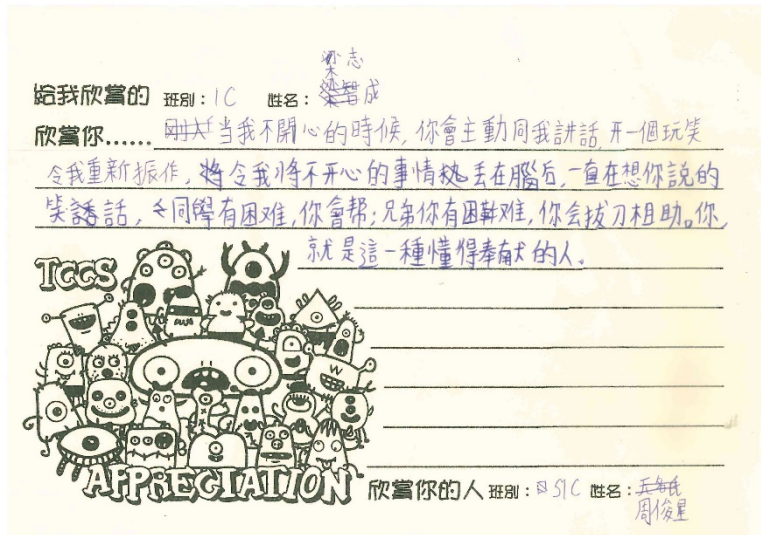 梁志
給我欣賞的 班別：1C 姓名：成
欣賞你…… 當我不開心的時候，你會主動同我講話，开一個玩笑
令我重新振作，令我將不开心的事情丟在腦后，一直在想你說的
笑話，同學有困难，你會帮；兄弟你有困难，你会拔刀相助。你，
就是這一種懂得奉献的人。
TCCS
APPRECIATION
欣賞你的人 班別：S1C 姓名：
周俊星